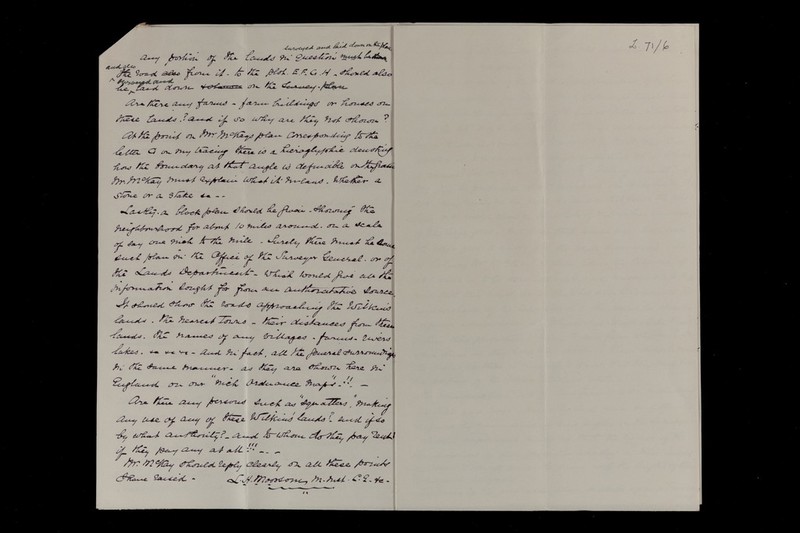 surveyed and laid down on the plan
any portion of the lands in question might be
and the
the road also from it - to the plot. E.F.G.H - should also
be laid down on the Survey-plan
Are there any farms - farm buildings or houses on
these lands? and if so why are they not shown?
At the point on Mr. McKay's plan corresponding to the
letter on my tracing there is a hieroglyphic denoting
how the boundary at that angle is definable on the
Mr. McKay must explain what it means. Whether a
Stone or a Stake
Lastly, a block plan should be given - showing the
neighbourhood for about 10 miles around - on a scale
of say one inch to the mile - Surely there must be some
such plan in the Office of the Surveyor General - or of
the Lands Department - which would give all the
information sought for from an authoritative source.
It should show the roads approaching the Wilkins
lands - the nearest towns - their distances from these
lands. the names of any villages - farms - rivers
lakes - and in fact, all the general surroundings
in the same manner - as they are shown here in
England on our "inch Ordnance Maps"!! -
Are there any persons such as "squatters", making
any use of any of these Wilkins' lands? and if so
by what authority? - and to whom do they pay rent
if they pay any at all!!! - -
Mr. McKay should reply clearly on all these points
I have raised - L. H. Moorsom, M. Inst. C.E. &c -
L 71/6